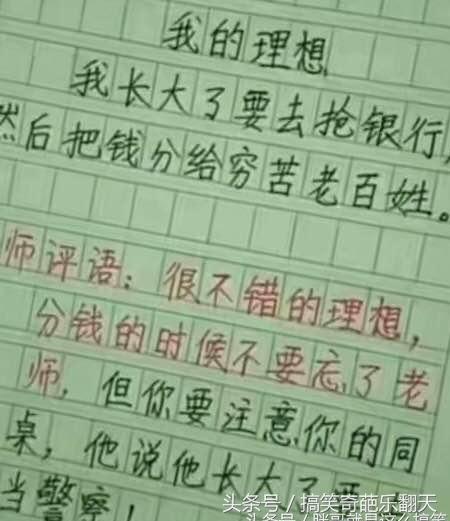 我的理想
我长大了要去抢银行,
然后把钱分给穷苦老百姓。
师评语:很不错的理想,
分钱的时候不要忘了老
师,但你要注意你的同
桌,他说他长大了要
当警察!
头条号/搞笑奇葩乐翻天